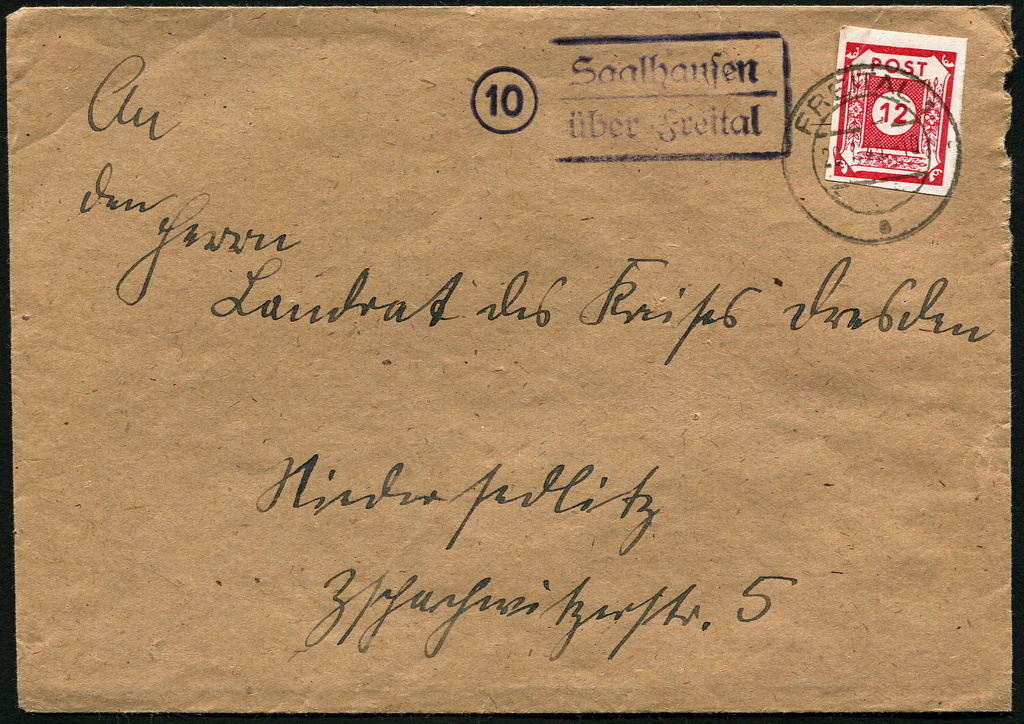 10
Saalhausen
über Freital
POST
12
FREITAL
a
An
den
Herrn
Landrat des Kreises Dresden
Niedersedlitz
Zschachwitzerstr. 5